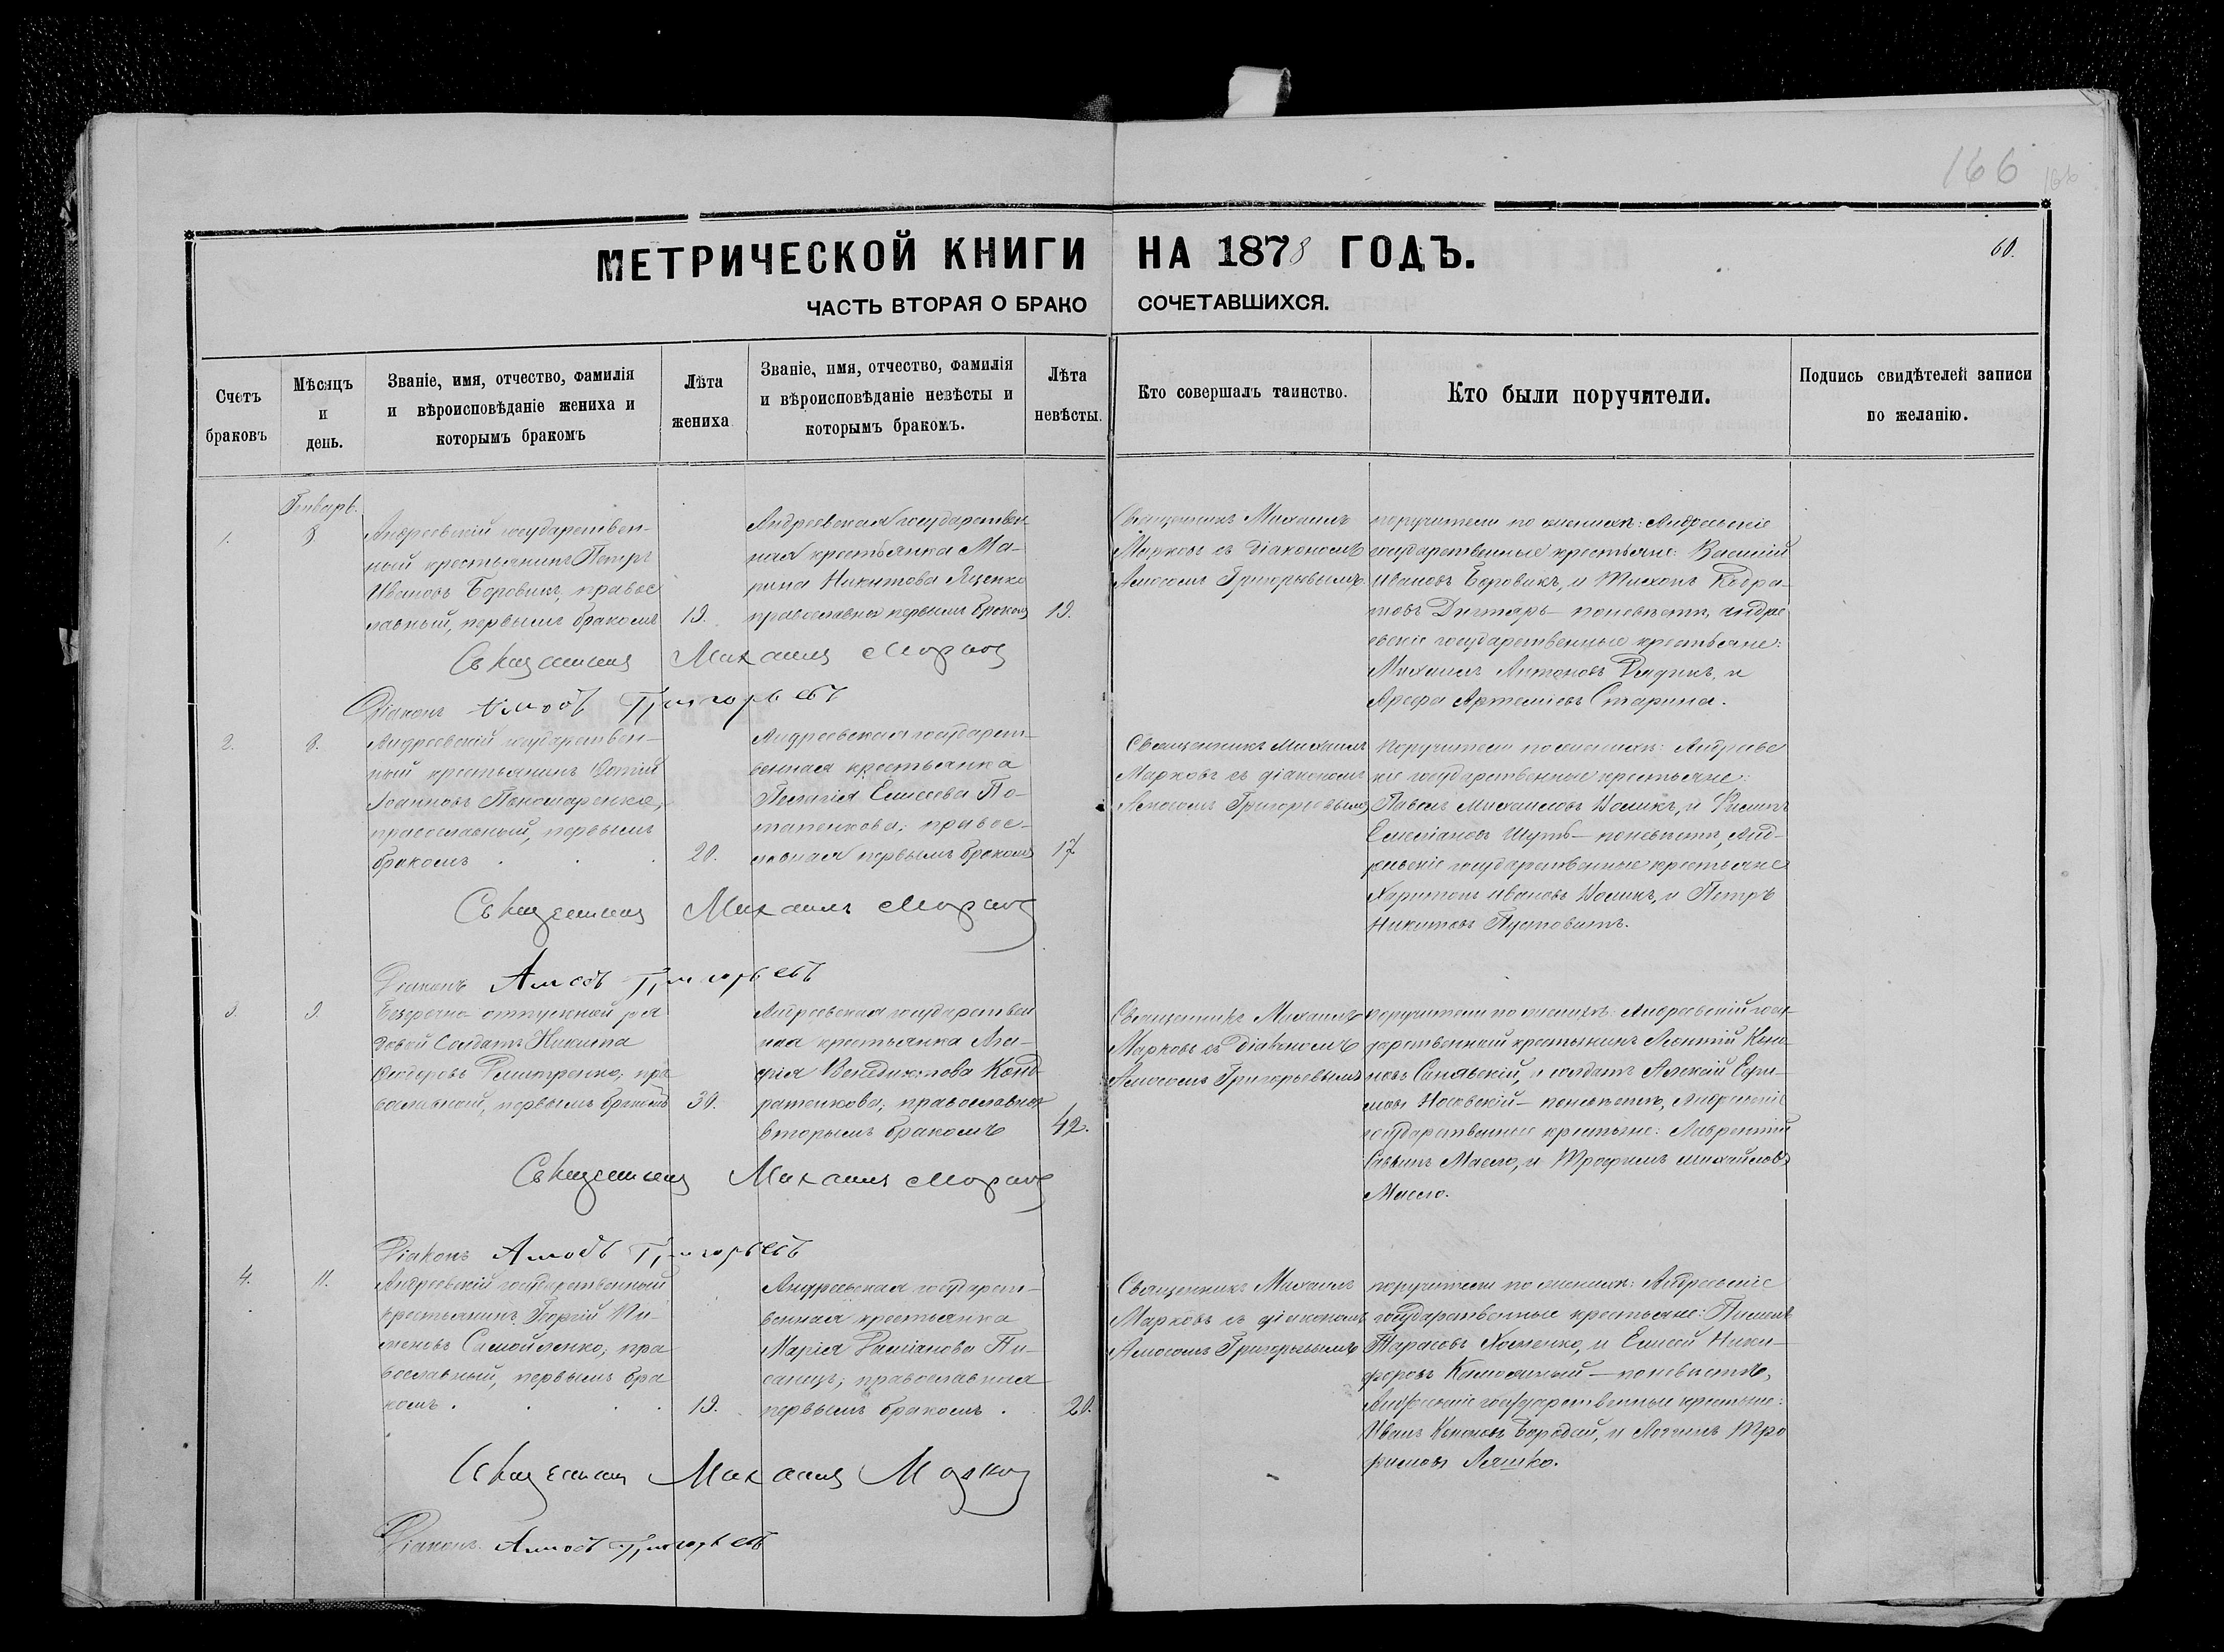 166
166
60.
МЕТРИЧЕСКОЙ КНИГИ НА 1878 ГОДЪ.
ЧАСТЬ ВТОРАЯ О БРАКО СОЧЕТАВШИХСЯ.
Счетъ
браковъ
Мѣсяцъ
и
день.
Званіе, имя, отчество, фамилія
и вѣроисповѣданіе жениха и
которымъ бракомъ
Лѣта
жениха
Званіе, имя, отчество, фамилія
и вѣроисповѣданіе невѣсты и
которымъ бракомъ.
Лѣта
невѣсты.
Кто совершалъ таинство.
Кто были поручители.
Подпись свидѣтелей записи
по желанію.
Январь.
1.
8
Андреевскій государствен-
ный крестьянинъ Петръ
Ивановъ Боровикъ, правос
лавный, первымъ бракомъ
19.
Андреевская государствен
ная крестьянка Ма-
рина Никитова Яценко
православная первымъ бракомъ
19.
Священникъ Михаилъ
Марковъ съ діакономъ
Амосомъ Григорьевымъ
поручители по женихѣ: Андреевскіе
государственные крестьяне: Василій
Ивановъ Боровикъ, и Тихонъ Кодра-
товъ Дигтярь – поневѣстѣ, андре
евскіе государственные крестьяне:
Михаилъ Антоновъ Рядикъ, и
Арефа Артеміевъ Старина.
Священникъ Михаилъ Марковъ
Діаконъ Амосъ Григорьевъ
2.
8.
Андреевскій государствен-
ный крестьянинъ Фотій
Іоанновъ Пономаренко,
православный, первымъ
бракомъ . . .
20.
Андреевская государст-
венная крестьянка
Пелагія Елисеева По-
тапенкова; правос-
лавная первымъ бракомъ
17
Священникъ Михаилъ
Марковъ съ діакономъ
Амосомъ Григорьевымъ
Поручители поженихѣ: Андреевс
кіе государственные крестьяне:
Павелъ Михаиловъ Шоликъ, и Филипъ
Емеліановъ Шуть – поневѣстѣ, Анд-
реевскіе государственные крестьяне
Харитонъ Ивановъ Шоликъ, и Петръ
Никитовъ Пустовитъ.
Священникъ Михаилъ Марковъ
Діаконъ Амосъ Григорьевъ
3.
9.
Безсрочно отпускной ря
довой Солдатъ Никита
Феодоровъ Дмитренко, пра
вославный, первымъ бракомъ
30.
Андреевская государствен
ная крестьянка Ага-
фія Венедиктова Конд-
ратенкова; православная
вторымъ бракомъ
42.
Священникъ Михаилъ
Марковъ съ діакономъ
Амосомъ Григорьевымъ
поручители по женихѣ: Андреевскій госу-
дарственный крестьянинъ Леонтій Коно-
новъ Синявскій, и солдатъ Алексій Ефи-
мовъ Носовскій – поневѣстѣ, Андреевскіе
государственные крестьяне: Лаврентій
Саввинъ Масло, и Трофимъ Михайловъ
Масло.
Священникъ Михаилъ Марковъ
Діаконъ Амосъ Григорьевъ
4.
11.
Андреевскій государственный
крестьянинъ Георгій Пи-
меновъ Самойленко, пра
вославный, первымъ бра
комъ . . . .
19.
Андреевская государст-
венная крестьянка
Марія Даміанова Пи-
саницъ; православная
первымъ бракомъ .
20.
Священникъ Михаилъ
Марковъ съ діакономъ
Амосомъ Григорьевымъ
поручители по женихѣ: Андреевскіе
государственные крестьяне: Пименъ
Тарасовъ Хоменко, и Елисей Ники-
форовъ – поневѣстѣ,
Андреевскіе государственные крестьяне:
Иванъ Кононовъ Бородай, и Логинъ Тро
фимовъ Ляшко.
Священникъ Михаилъ Марковъ
Діаконъ Амосъ Григорьевъ